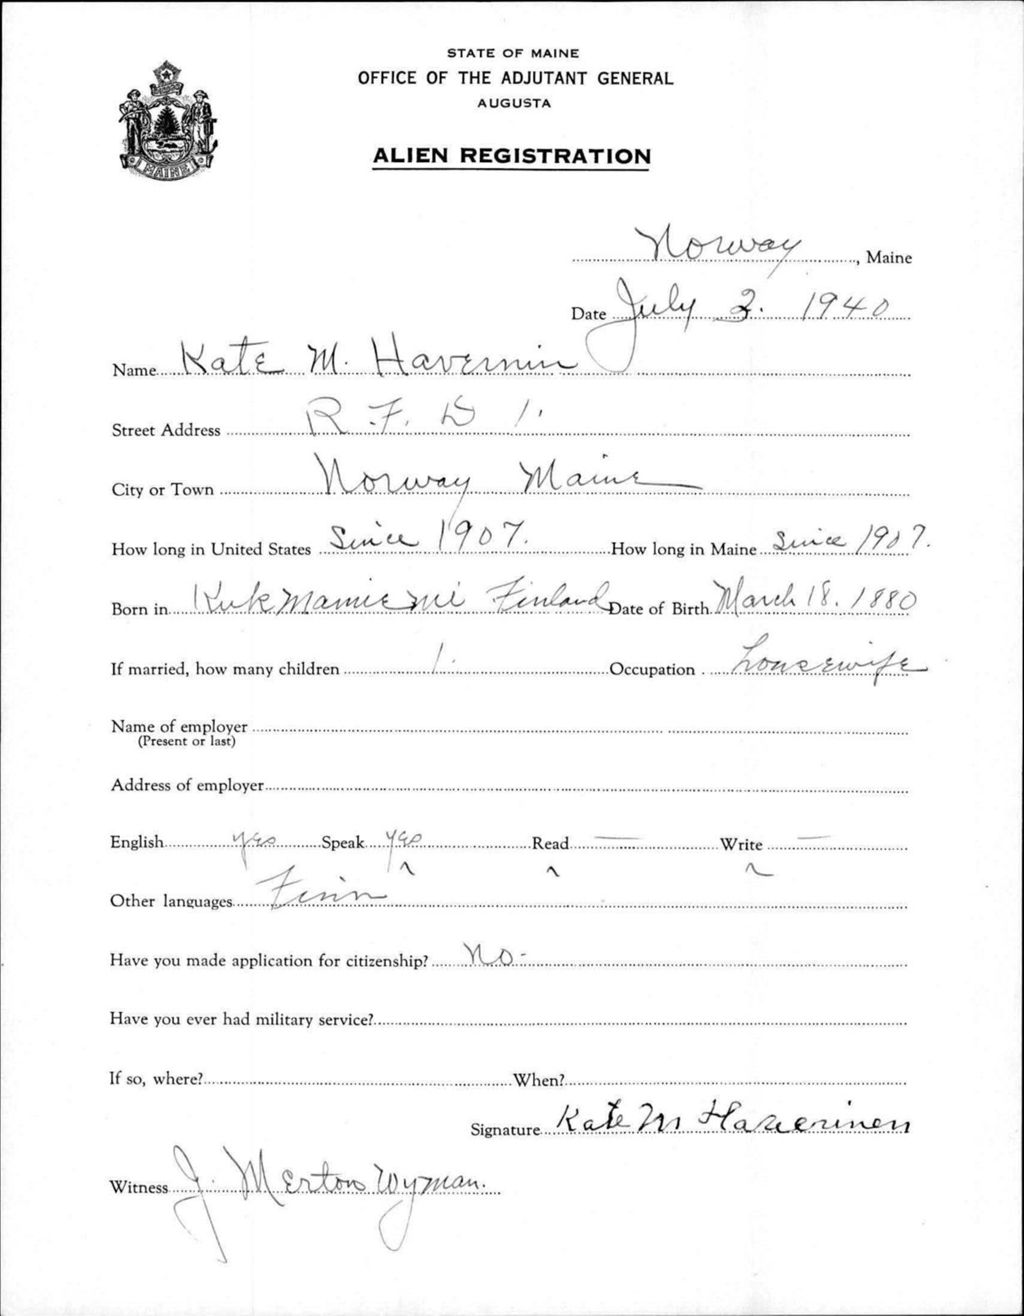 STATE OF MAINE
OFFICE OF THE ADJUTANT GENERAL
AUGUSTA
ALIEN REGISTRATION
MAINE
Norway, Maine
Date July 2. 1940
Name Kate M. Havernin
Street Address R. F. D 1.
City or Town Norway Maine
How long in United States Since 1907. How long in Maine Since 1907.
Born in Finland Date of Birth March 18. 1880
If married, how many children 1. Occupation housewife
Name of employer
(Present or last)
Address of employer
English yes Speak yes Read — Write —
Other languages Finn
Have you made application for citizenship? No -
Have you ever had military service?
If so, where? When?
Signature Kate M
Witness J. Merton Wyman.